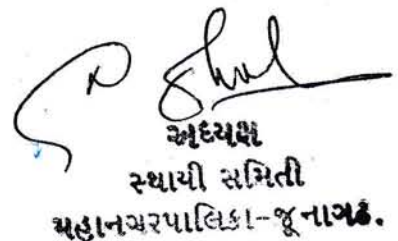 અધ્યક્ષ
સ્થાયી સમિતી
મહાનગરપાલિકા-જૂનાગઢ.